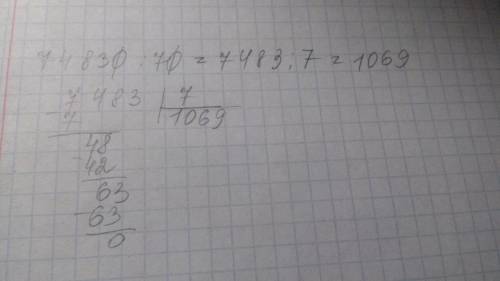 74830 : 70 = 7483 : 7 = 1069
7483 | 7
- 7 | 1069
48
- 42
63
- 63
0